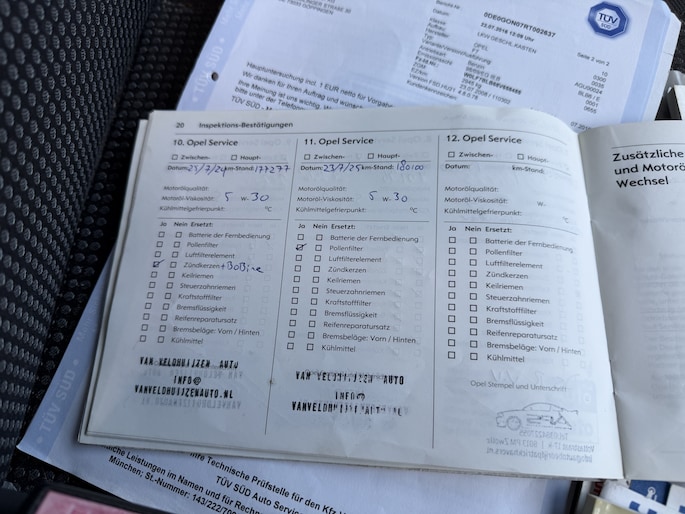 Bericht-Nr.
0DE0GON07RT002637
Datum:
22.07.2016 12:08 Uhr
LKW GESCHL.KASTEN
OPEL
Benzin
TÜV
SÜD
Seite 2 von 2
10
0300
0035
AGU00024
BL/66 / E
0001
0655
Hauptuntersuchung incl. 1 EUR netto für
Wir danken für Ihren Auftrag und
bitte unter der
TÜV SÜD
20 Inspektions-Bestätigungen
10. Opel Service
Zwischen- Haupt-
Datum: 23/7/24 km-Stand: 177277
Motorölqualität:
Motoröl-Viskosität: 5 W- 30
Kühlmittelgefrierpunkt: °C
Ja Nein Ersetzt:
Batterie der Fernbedienung
Pollenfilter
Luftfilterelement
Zündkerzen + BoBine
Keilriemen
Steuerzahnriemen
Kraftstofffilter
Bremsflüssigkeit
Reifenreparatursatz
Bremsbeläge: Vorn / Hinten
Kühlmittel
VAN VELDHUIJZEN AUTO
INFO@
VANVELDHUIJZENAUTO.NL
11. Opel Service
Zwischen- Haupt-
Datum: 23/7/25 km-Stand:
Motorölqualität:
Motoröl-Viskosität: 5 W- 30
Kühlmittelgefrierpunkt: °C
Ja Nein Ersetzt:
Batterie der Fernbedienung
Pollenfilter
Luftfilterelement
Zündkerzen
Keilriemen
Steuerzahnriemen
Kraftstofffilter
Bremsflüssigkeit
Reifenreparatursatz
Bremsbeläge: Vorn / Hinten
Kühlmittel
VAN VELDHUIJZEN AUTO
INFO@
12. Opel Service
Zwischen- Haupt-
Datum: km-Stand:
Motorölqualität:
Motoröl-Viskosität: W-
Kühlmittelgefrierpunkt: °C
Ja Nein Ersetzt:
Batterie der Fernbedienung
Pollenfilter
Luftfilterelement
Zündkerzen
Keilriemen
Steuerzahnriemen
Kraftstofffilter
Bremsflüssigkeit
Reifenreparatursatz
Bremsbeläge: Vorn / Hinten
Kühlmittel
Opel Stempel und Unterschrift
Zusätzliche
und Motorö
Wechsel
Technische Prüfstelle für den Kfz
Leistungen im Namen und für
TÜV SÜD Auto
München: St.-Nummer: